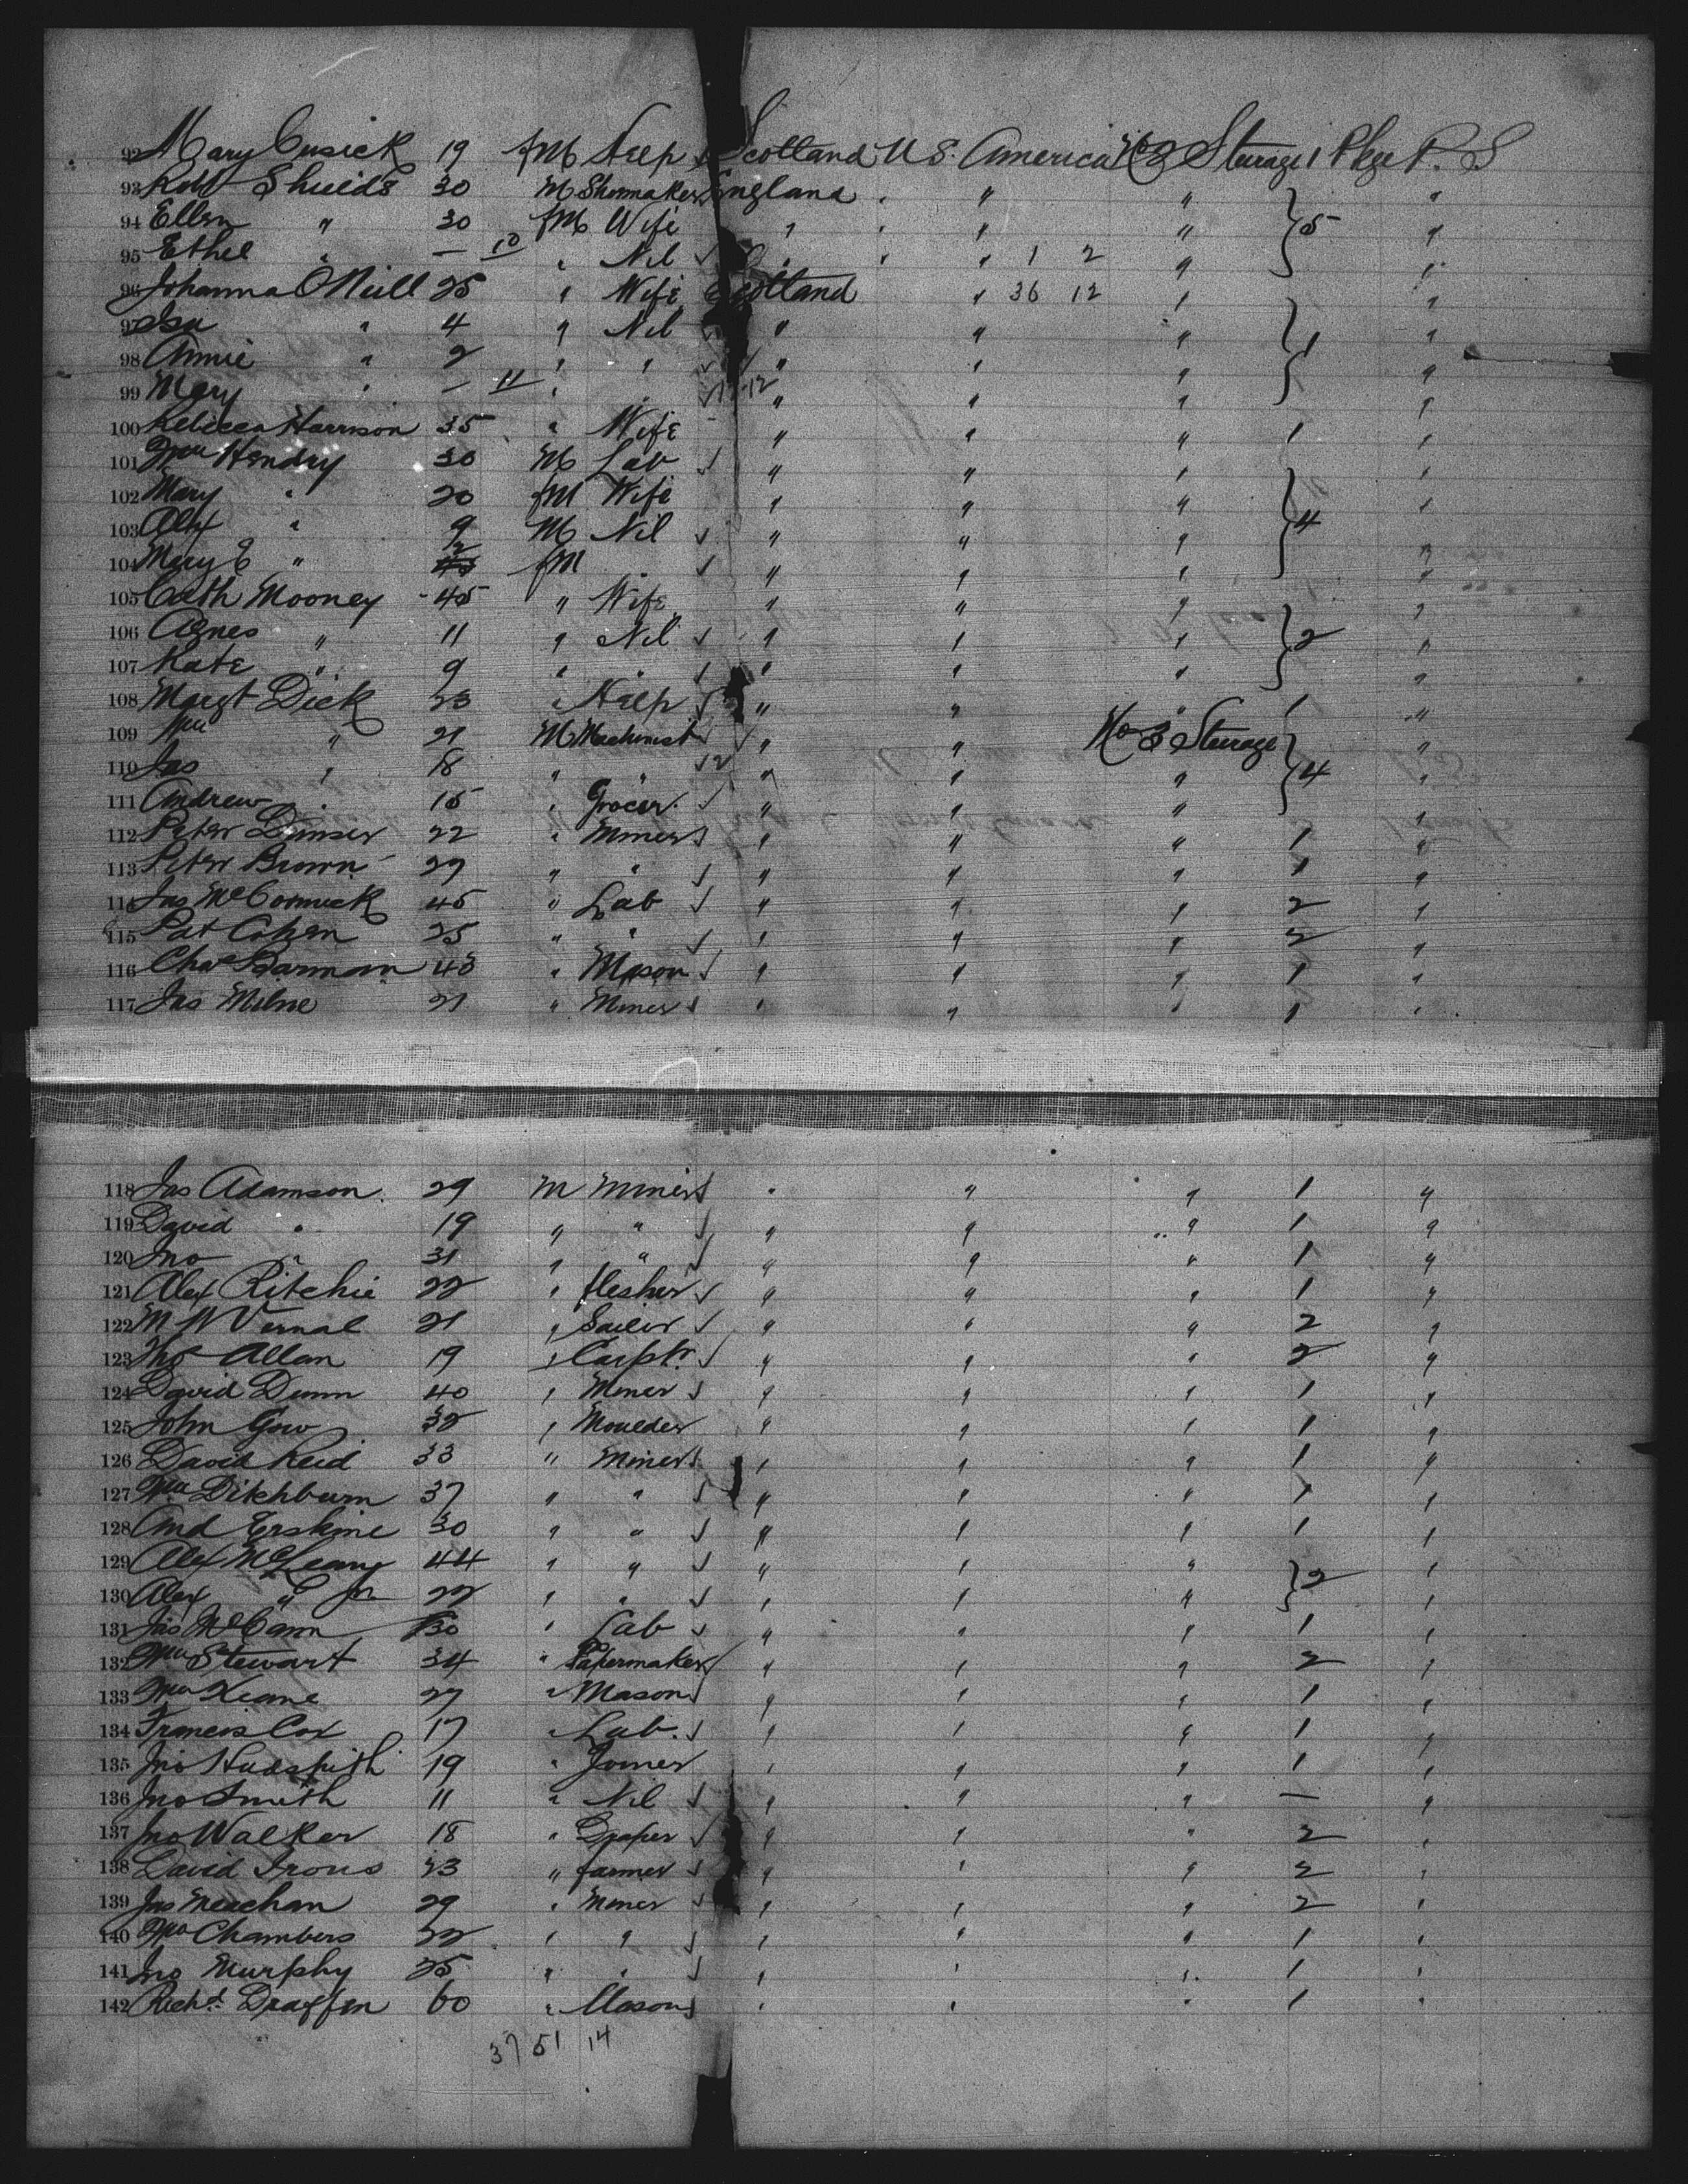 92 Mary Cusick 19 fM Help Scotland U S. America No 2 Steerage 1 Pkge P. S
93 Robt Shields 30 M Shoemaker England " " "
94 Ellen " 30 fM Wife " " " } 5 "
95 Ethel " — 10 " Nil " " 1 2 " "
96 Johanna O'Neill 25 " Wife Scotland " 36 12 " "
97 Isa " 4 " Nil " " " } 1 "
98 Annie " 2 " " " " " "
99 Mary " — 11 " " " " " "
100 Rebecca Harrison 35 " Wife " " " 1 "
101 Wm Hendry 30 M Lab " " " "
102 Mary " 20 fM Wife " " " "
103 Alex " 9 M Nil " " " } 4 "
104 Mary E " 2 fM " " " " "
105 Cath Mooney 45 " Wife " " " "
106 Agnes " 11 " Nil " " " } 2 "
107 Kate " 9 " " " " " "
108 Margt Dick 23 " Help " " " 1 "
109 Wm " 21 M Machinist " " No 3 Steerage "
110 Jas " 18 " " " " " } 4 "
111 Andrew " 15 " Grocer " " " "
112 Peter 22 " Miner " " " 1 "
113 Peter Brown 29 " " " " " 1 "
114 Jas McCormick 45 " Lab " " " 2 "
115 Pat 25 " " " " " 2 "
116 Chas 43 " Mason " " " 1 "
117 Jas Milne 21 " Miner " " " 1 "
118 Jas Adamson 29 M Miner " " " 1 "
119 David " 19 " " " " " 1 "
120 Jno " 31 " " " " " 1 "
121 Alex Ritchie 22 " flesher " " " 1 "
122 M W Vernal 21 " Sailor " " " 2 "
123 Thos Allan 19 " Carptr " " " 2 "
124 David Dunn 40 " Miner " " " 1 "
125 John Gow 32 " Moulder " " " 1 "
126 David Reid 33 " Miner " " " 1 "
127 Wm Ditchburn 37 " " " " " 1 "
128 And Erskine 30 " " " " " 1 "
129 Alex 44 " " " " " } 2 "
130 Alex " Jn 22 " " " " " "
131 Jas McCann 30 " Lab " " " 1 "
132 Wm Stewart 34 " Papermaker " " " 2 "
133 Wm Keane 27 " Mason " " " 1 "
134 Francis Cox 17 " Lab. " " " 1 "
135 Jno Hudspith 19 " Joiner " " " 1 "
136 Jno Smith 11 " Nil " " " — "
137 Jno Walker 18 " Draper " " " 2 "
138 David Irons 23 " farmer " " " 2 "
139 Jas Meachan 29 " Miner " " " 2 "
140 Wm Chambers 22 " " " " " 1 "
141 Jno Murphy 25 " " " " " 1 "
142 Richd. Draffen 60 " Mason " " " 1 "
37 51 14